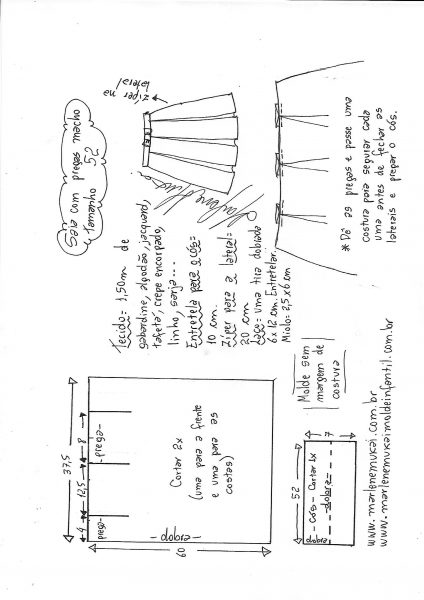 Saia com pregas macho
tamanho 52
zíper na
lateral
Tecido = 1,50m de
gabardine, algodão, jacquard,
tafetá, crepe encorpado,
linho, sarja...
Entretela para o cós=
10 cm.
Zíper para a lateral=
20 cm
Laço = uma tira dobrada
6x12 cm. Entretelar.
Miolo: 2,5x6cm
* Dê as pregas e passe uma
costura para segurar cada
uma antes de fechar as
laterais e pregar o cós.
37,5
4
12,5
8
prega
prega
60
Cortar 2x
(uma para a frente
e uma para as
costas)
dobra
Molde sem
margem de
costura
52
7
Cós - Cortar 1x
dobra
dobra
www.marlenemukai.com.br
www.marlenemukaimoldeinfantil.com.br